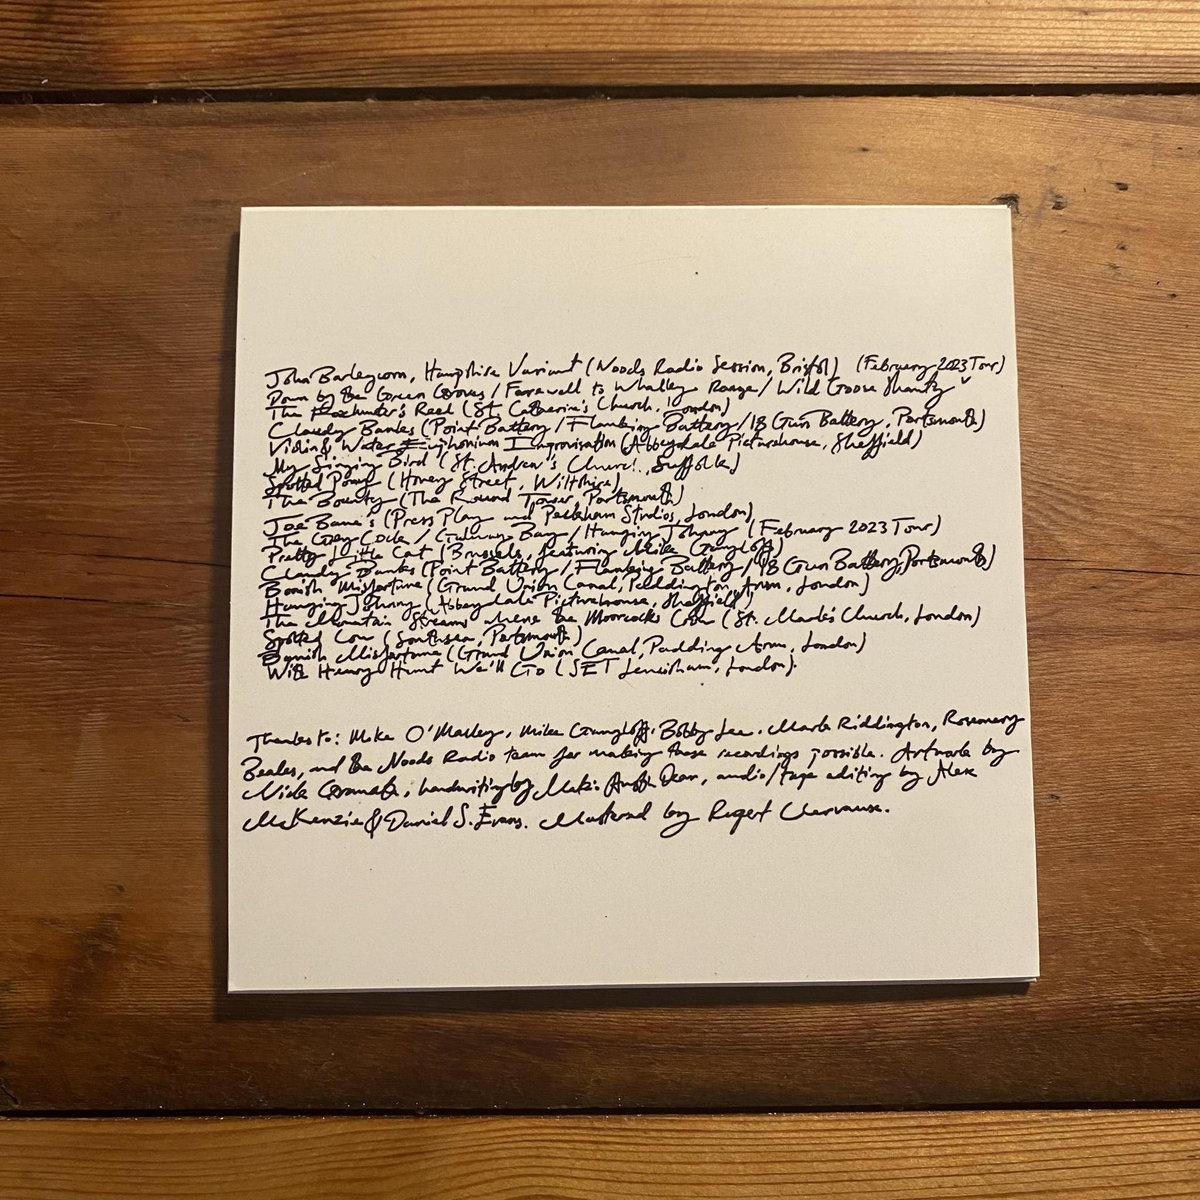 John Barleycorn, Hampshire Variant (Noods Radio Session, Bristol) (February 2023 Tour)
Down by the Green Groves / Farewell to Whalley Range / Wild Goose Shanty
The Reel (St. Catherine's Church, London)
Cloudy Banks (Point Battery / Flanking Battery / 18 Gun Battery, Portsmouth)
Violin & Water Euphonium Improvisation (Abbeydale Picturehouse, Sheffield)
My Singing Bird (St. Andrew's Church, Suffolk)
Spotted Cow (Honey Street, Wiltshire)
The Bounty (The Round Tower, Portsmouth)
Joe Bane's (Press Play and Peckham Studios, London)
The Grey Cock / Galway Bay / Hanging Johnny (February 2023 Tour)
Pretty Little Cat (Brussels, featuring Mike Gangloff)
Cloudy Banks (Point Battery / Flanking Battery / 18 Gun Battery, Portsmouth)
Banish Misfortune (Grand Union Canal, Paddington Arm, London)
Hanging Johnny (Abbeydale Picturehouse, Sheffield)
The Mountain Streams where the Moorcocks Crow (St. Mark's Church, London)
Spotted Cow (Southsea, Portsmouth)
Banish Misfortune (Grand Union Canal, Padding Arm, London)
With Henry Hunt We'll Go (SET Lewisham, London).
Thanks to: Mike O'Malley, Mike Gangloff, Bobby Lee, Mark Riddington, Rosemary
Beales, and the Noods Radio team for making these recordings possible. Artwork by
Nick handwriting by Dean, audio/tape editing by Alex
McKenzie & Daniel S. Evans. Mastered by